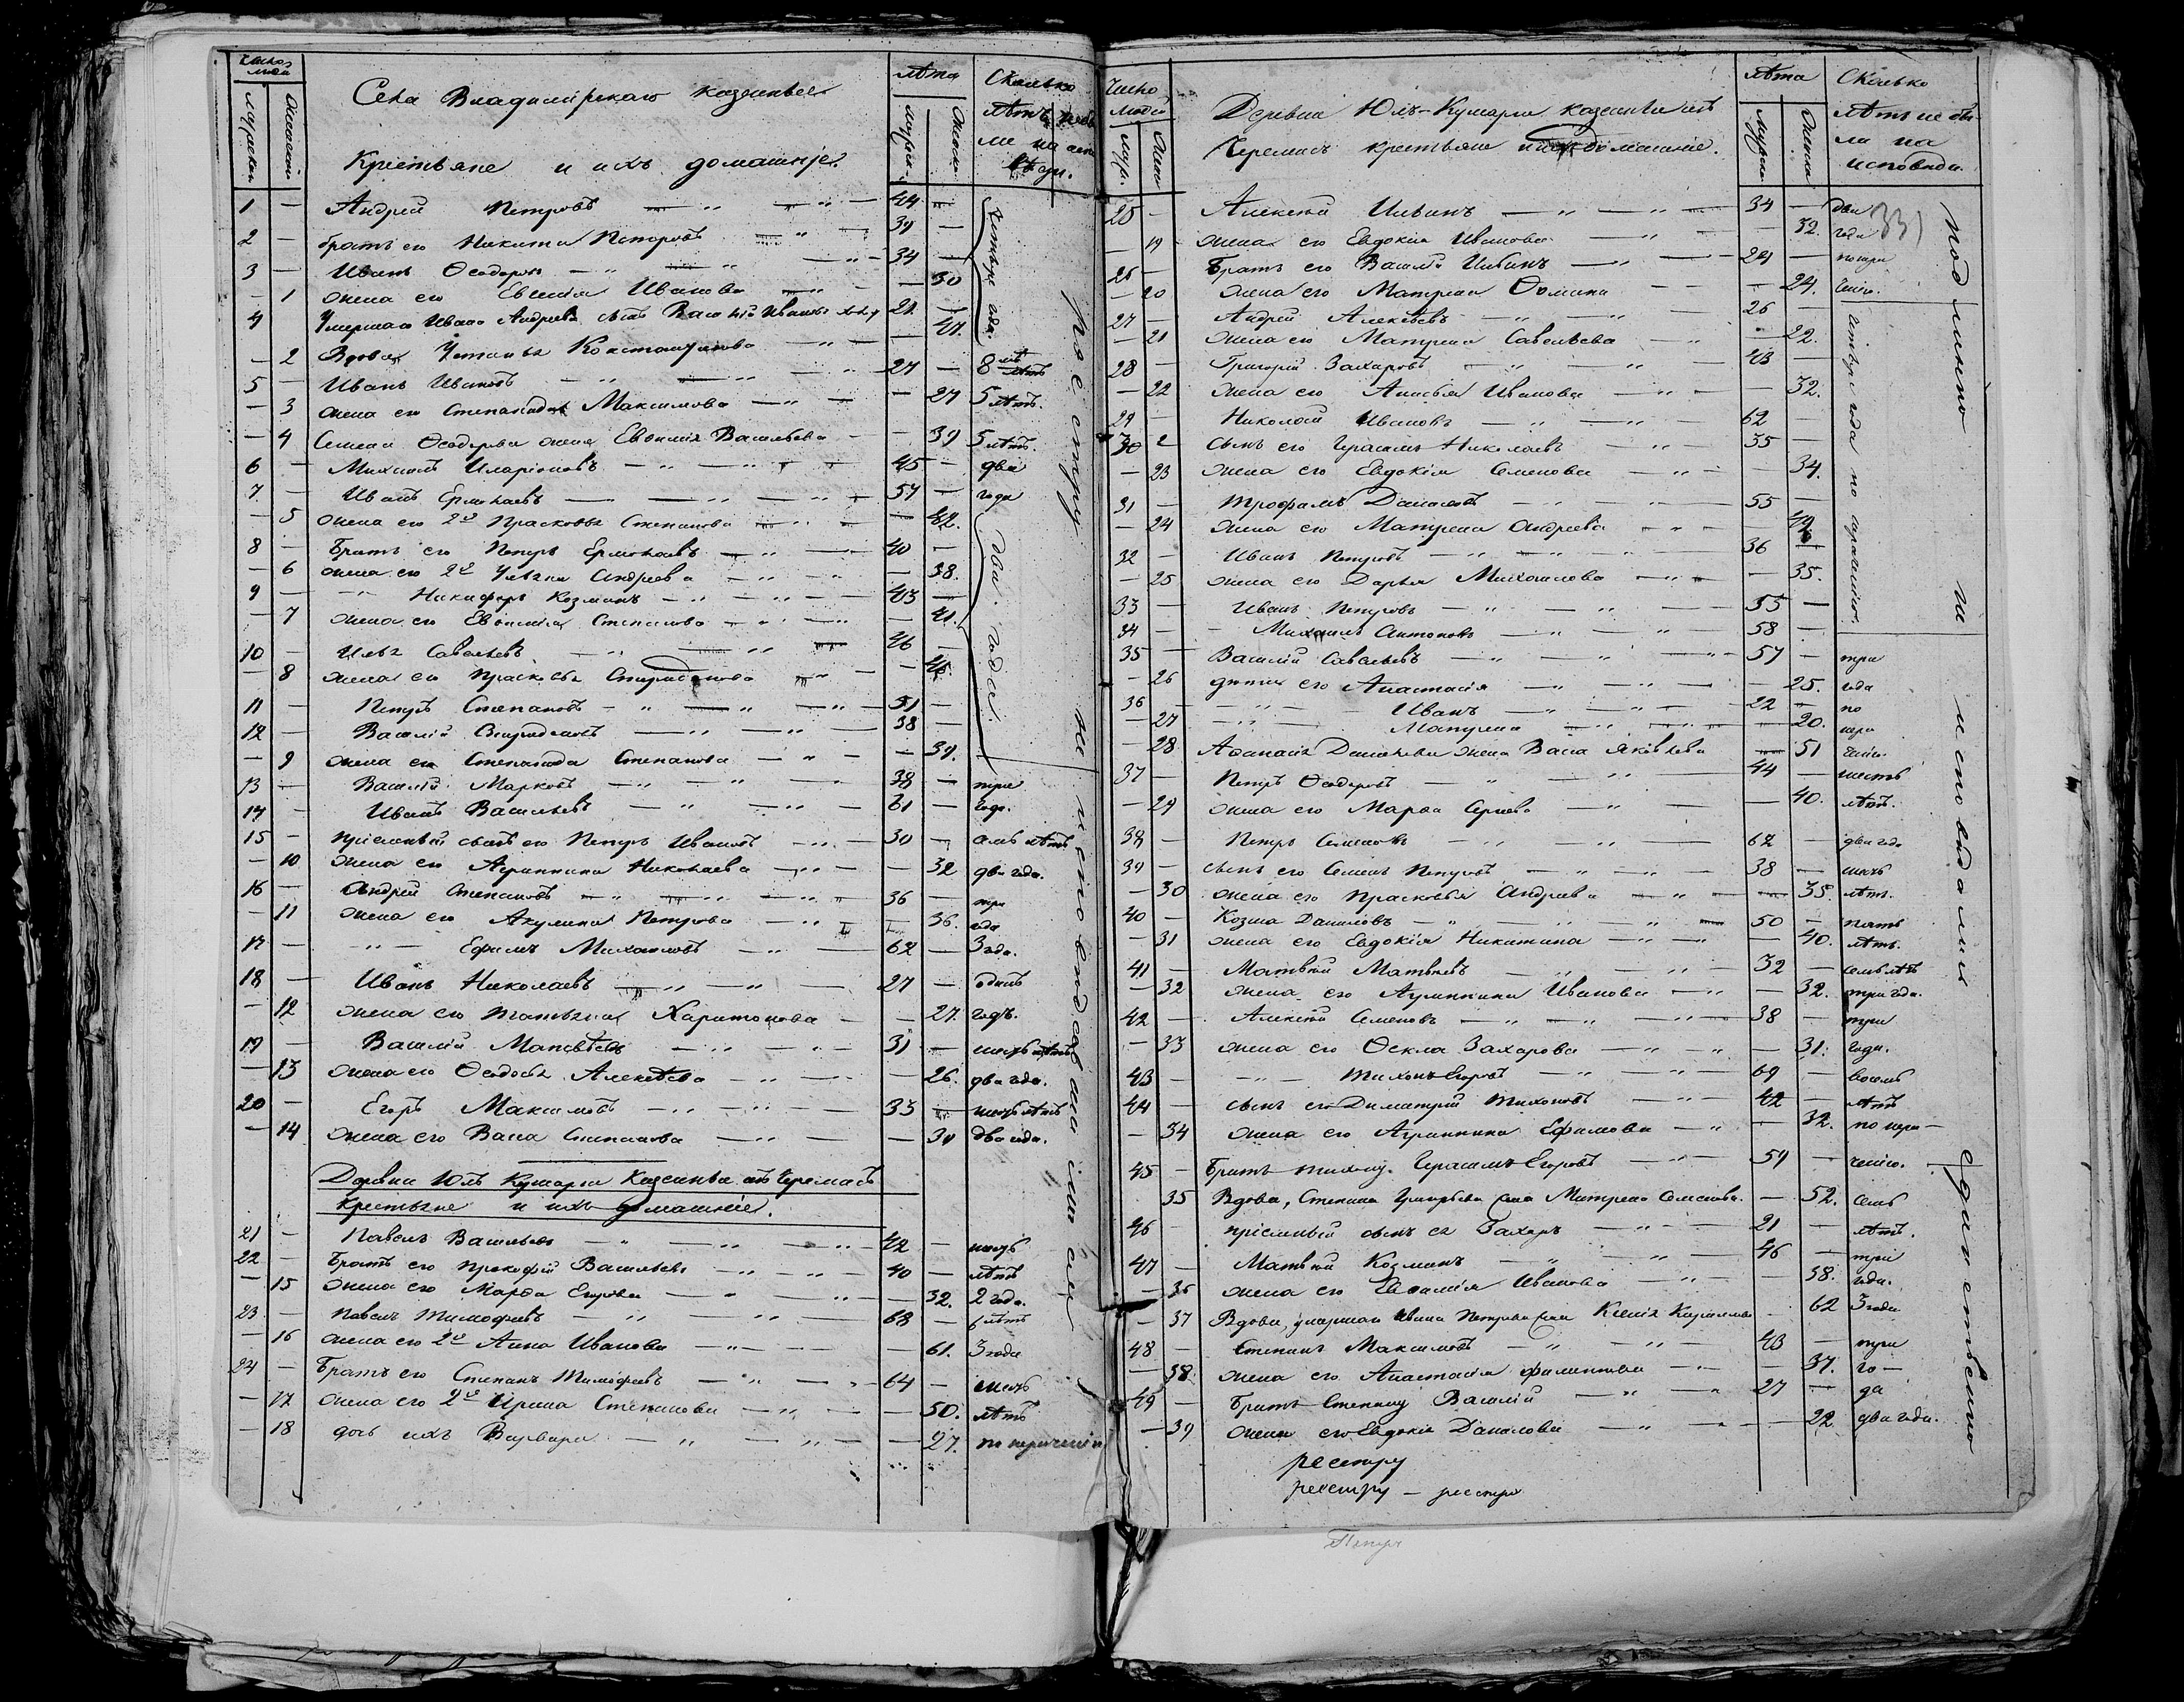 Число людей
Мужеска
Женска
Села Владимірскаго казенные
Крестьяне и ихъ домашніе.
лѣта
Мужск.
Женск.
Сколько
лѣтъ не бы
ли на испо
вѣди.
1 — Андрей Петровъ 44 —
2 — братъ его Никита Петровъ 39 —
3 — Иванъ Ѳеодоровъ 34 —
— 1 жена его Евгенія Иванова — 30
четыре года.
4 Умершаго Ивана Андреева сынъ Василій Ивановъ 21 —
— 2 Вдова Устинья Константинова — 41.
5 — Иванъ Ивановъ 27 — 8 лѣтъ
— 3 жена его Степанида Максимова — 27 5 лѣтъ.
— 4 Семена Ѳеодорова жена Евфимія Васильева — 39 5 лѣтъ.
6 — Михаилъ Иларіоновъ 45 — два
7 — Иванъ Ермолаевъ 57 — года
— 5 жена его 2я Прасковья Степанова — 42.
8 — братъ его Петръ Ермолаевъ 40 —
— 6 жена его 2я Ульяна Андреева — 38.
9 — Никифоръ Козминъ 43 —
— 7 жена его Евфимія Степанова — 41.
два года.
10 — Илья Савельевъ 46 —
— 8 жена его Прасковья Спиридонова — 45.
11 — Петръ Степановъ 51 —
12 — Василій Спиридоновъ 38 —
— 9 жена его Степанида Степанова — 39.
13 — Василій Марковъ 38 — три
14 — Иванъ Васильевъ 61 — года.
15 — пріемный сынъ его Петръ Ивановъ 30 — семь лѣтъ
— 10 жена его Агриппина Николаева — 32 два года.
16 — Андрей Степановъ 36 — три
— 11 жена его Акулина Петрова — 36. года
17 — Ефимъ Михайловъ 62 — 3 года.
18 — Иванъ Николаевъ 27 — одинъ
— 12 жена его Татьяна Харитонова — 27. годъ.
19 — Василій Матвѣевъ 31 — шесть лѣтъ
— 13 жена его Ѳеодосья Алексѣева — 26. два года.
20 — Егоръ Максимовъ 33 — шесть лѣтъ
— 14 жена его Васса Степанова — 34 два года.
Деревни Юлъ Кушарги Казенные изъ Черемисъ
Крестьяне и ихъ домашніе.
21 — Павелъ Васильевъ 42 — шесть
22 — братъ его Прокофій Васильевъ 40 — лѣтъ
— 15 жена его Марѳа Егорова — 32. 2 года.
23 — Павелъ Тимофеевъ 68 — лѣтъ
— 16 жена его 2я Анна Иванова — 61. 3 года
24 — братъ его Степанъ Тимофеевъ 64 — шесть
— 17 жена его 2я Ирина Степанова — 50. лѣтъ
— 18 дочь ихъ Варвара — 27. по нераченію
по реэстру на исповѣдь
Число людей
Муж.
Жен.
Деревни Юлъ-Кушарги казенные изъ
Черемисъ крестьяне и ихъ домашніе.
лѣта
Мужск.
Женска
Сколько
лѣтъ не бы-
ли на
исповѣди.
331
25 — Алексѣй Ильинъ 34 — два
— 19 жена его Евдокія Иванова — 32. года
26 — братъ его Василій Ильинъ 24 — по нера
— 20 жена его Матрена Ѳомина — 24. ченію.
27 — Андрей Алексѣевъ 26 —
— 21 жена его Матрена Савельева — 22.
28 — Григорій Захаровъ 43 —
— 22 жена его Анисья Иванова — 32.
29 — Николай Ивановъ 62 —
30 — сынъ его Герасимъ Николаевъ 35 —
— 23 жена его Евдокія Семенова — 34.
31 — Трофимъ Даниловъ 55 —
— 24 жена его Матрена Андреева — 49
32 — Иванъ Петровъ 36 —
— 25 жена его Дарья Михайлова — 35.
33 — Иванъ Петровъ 55 —
34 — Михаилъ Антоновъ 58 —
четыре года по нераченію.
35 — Василій Савельевъ 57 — три
— 26 дѣти его Анастасія — 25. года
36 — Иванъ 22 — по
— 27 Матрена — 20. нера
— 28 Аѳанасія Данилова жена Васса Яковлева — 51 ченію.
37 — Петръ Ѳеодоровъ 44 — шесть
— 29 жена его Марѳа Сергеева — 40. лѣтъ.
38 — Петръ Семеновъ 62 — два года
39 — сынъ его Семенъ Петровъ 38 — шесть
— 30 жена его Прасковья Андреева — 35. лѣтъ.
40 — Козма Даниловъ 50 — пять
— 31 жена его Евдокія Никитина — 40. лѣтъ.
41 — Матвѣй Матвѣевъ 32 — семь лѣтъ
— 32 жена его Агриппина Иванова — 32. три года.
42 — Алексѣй Семеновъ 38 — три
— 33 жена его Ѳекла Захарова — 31. года.
43 — Тихонъ Егоровъ 69 — восемь
44 — сынъ его Димитрій Тихоновъ 42 — лѣтъ
— 34 жена его Агриппина Ефимова — 32. по нера-
45 — братъ Тихону Герасимъ Егоровъ 59 — ченію.
35 Вдова, Степана Григорьева жена Матрена Семенова. — 52. семь
46 — пріемный сынъ ея Захаръ 21 — лѣтъ.
47 — Матвѣй Козминъ 46 — три
— 36 жена его Евфимія Иванова — 38. года.
— 37 Вдова, умершаго Ивана Петрова жена Ксенія Кирилова — 62 3 года
48 — Степанъ Максимовъ 43 — три
— 38 жена его Анастасія Филиппова — 37. го-
49 — братъ Степану Василій 27 — да
— 39 жена его Евдокія Данилова — 22 два года.
реестру
реестру — реестру
Петръ
подлинно на исповѣди